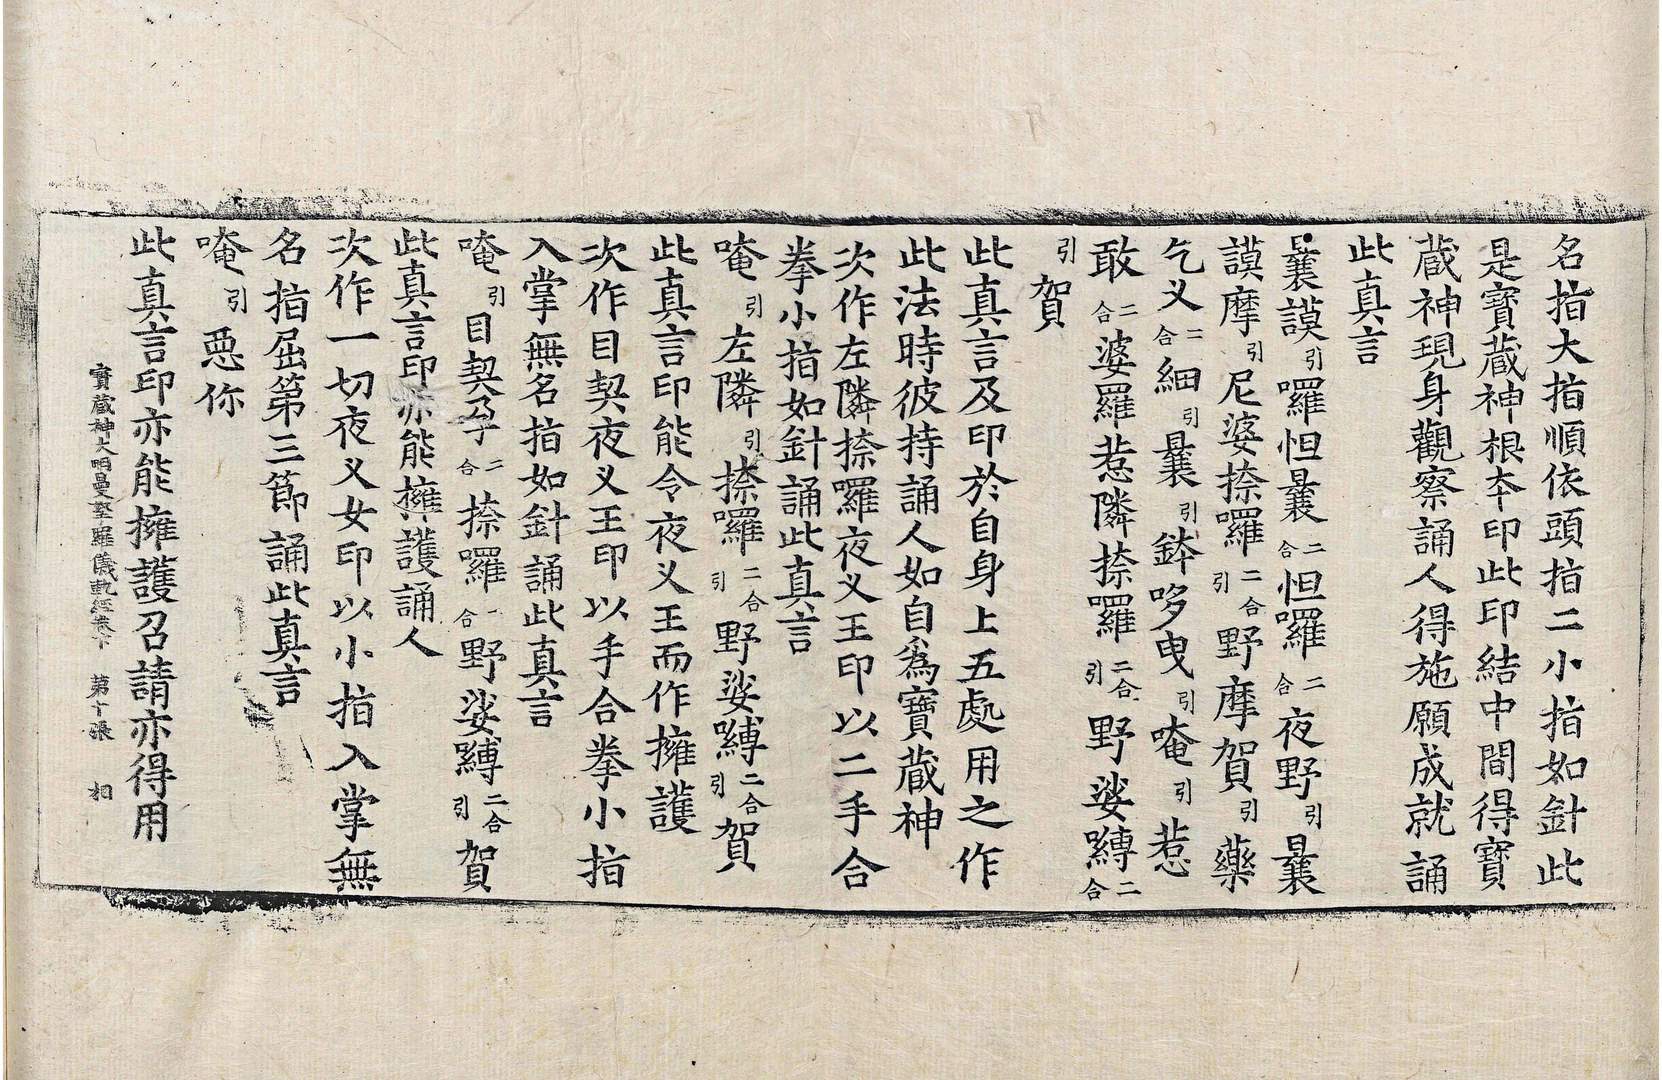 名指大指順依頭指二小指如針此
是寶藏神根本印此印結中間得寶
藏神現身觀察誦人得施願成就誦
此真言
曩謨引囉怛曩二合怛囉二合夜野引曩
謨摩引尼婆捺囉二合引野摩賀引藥
乞叉二合細引曩引鉢哆曳引唵引惹
敢二合婆羅惹隣捺囉二合引野娑嚩二合
引賀
此真言及印於自身上五處用之作
此法時彼持誦人如自爲寶藏神
次作左隣捺囉夜叉王印以二手合
拳小指如針誦此真言
唵引左隣引捺囉二合引野娑嚩二合引賀
此真言印能令夜叉王而作擁護
次作目契夜叉王印以手合拳小指
入掌無名指如針誦此真言
唵引目契孕二合捺囉二合野娑嚩二合引賀
此真言印亦能擁護誦人
次作一切夜叉女印以小指入掌無
名指屈第三節誦此真言
唵引惡你
此真言印亦能擁護召請亦得用
寶藏神大明曼拏羅儀軌經卷下 第十張 相